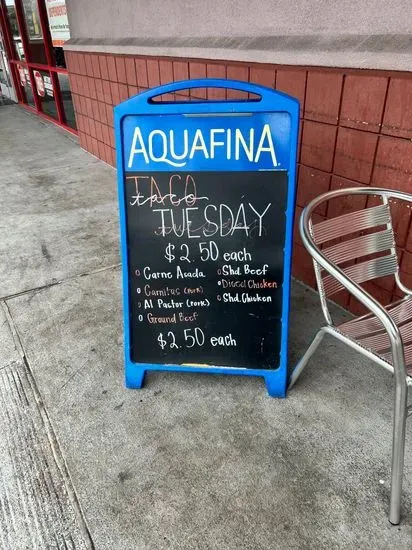 AQUAFINA
TACO
TUESDAY
$2.50 each
Carne Asada
Carnitas (PORK)
Al Pastor (PORK)
Ground Beef
Shd Beef
Diced Chicken
Shd. Chicken
$2.50 each